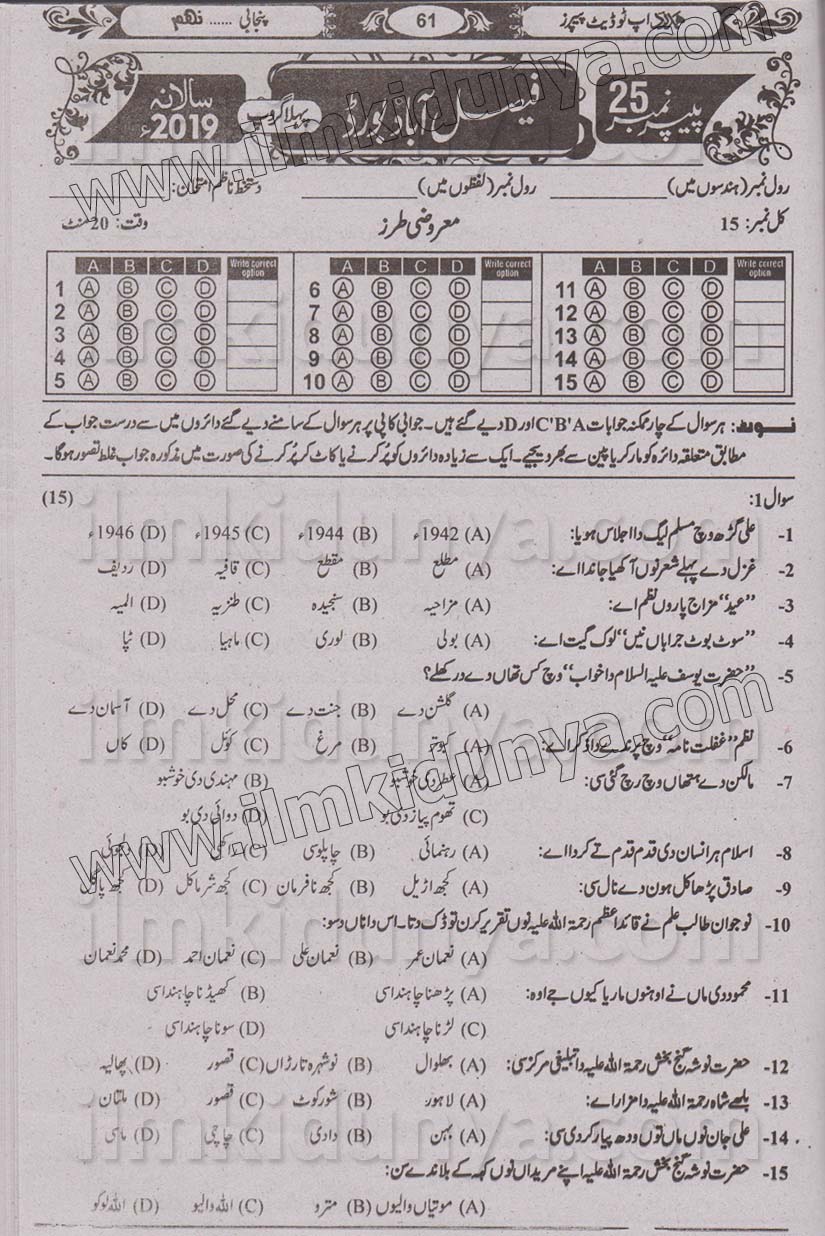 پنجابی ...... نہم 61 اپ ٹو ڈیٹ پیپرز
پیپر نمبر 25
فیصل آباد بورڈ
پہلا گروپ
سالانہ 2019ء
رول نمبر (ہندسوں میں) ____________ رول نمبر (لفظوں میں) ____________ دستخط ناظم امتحان: ____________
کل نمبر: 15 معروضی طرز وقت: 20 منٹ
A B C D Write correct option A B C D Write correct option A B C D Write correct option
1 A B C D 6 A B C D 11 A B C D
2 A B C D 7 A B C D 12 A B C D
3 A B C D 8 A B C D 13 A B C D
4 A B C D 9 A B C D 14 A B C D
5 A B C D 10 A B C D 15 A B C D
نوٹ: ہر سوال کے چار ممکنہ جوابات C'B'A اور D دیے گئے ہیں۔ جوابی کاپی پر ہر سوال کے سامنے دیے گئے دائروں میں سے درست جواب کے
مطابق متعلقہ دائرہ کو مارکر یا پین سے بھر دیجیے۔ ایک سے زیادہ دائروں کو پُر کرنے یا کاٹ کر پُر کرنے کی صورت میں مذکورہ جواب غلط تصور ہو گا۔
سوال 1: (15)
1- علی گڑھ وچ مسلم لیگ دا اجلاس ہویا: (A) 1942ء (B) 1944ء (C) 1945ء (D) 1946ء
2- غزل دے پہلے شعر نوں آکھیا جاندا اے: (A) مطلع (B) مقطع (C) قافیہ (D) ردیف
3- ”عید“ مزاج پاروں نظم اے: (A) مزاحیہ (B) سنجیدہ (C) طنزیہ (D) المیہ
4- ”سوٹ بوٹ جراباں نیں“ لوک گیت اے: (A) بولی (B) لوری (C) ماہیا (D) ٹپا
5- ”حضرت یوسف علیہ السلام دا خواب“ وچ کس تھاں دے ورکھلے؟
(A) گلشن دے (B) جنت دے (C) محل دے (D) آسمان دے
6- نظم ”غفلت نامہ“ وچ پرندے دا ذکر اے: (A) کبوتر (B) مرغ (C) کوئل (D) کاں
7- مالکن دے ہتھاں وچ رچ گئی سی: (A) عطر دی خوشبو (B) مہندی دی خوشبو
(C) تھوم پیاز دی بو (D) دوائی دی بو
8- اسلام ہر انسان دی قدم قدم تے کردا اے: (A) رہنمائی (B) چاپلوسی (C) راکھی (D) دلجوئی
9- صادق پڑھاکل ہون دے نال سی: (A) کجھ اڑیل (B) کجھ نافرمان (C) کجھ شرماکل (D) کجھ پاگل
10- نوجوان طالب علم نے قائداعظم رحمۃ اللہ علیہ نوں تقریر کرن توں ڈک دتا۔ اس دا ناں دسو:
(A) نعمان عمر (B) نعمان علی (C) نعمان احمد (D) محمد نعمان
11- محمود دی ماں نے اوہنوں ماریا کیوں جے اوہ: (A) پڑھنا چاہندا سی (B) کھیڈنا چاہندا سی
(C) لڑنا چاہندا سی (D) سونا چاہندا سی
12- حضرت نوشہ گنج بخش رحمۃ اللہ علیہ دا تبلیغی مرکز سی: (A) بھلوال (B) نوشہرہ تارڑاں (C) قصور (D) پھالیہ
13- بلھے شاہ رحمۃ اللہ علیہ دا مزار اے: (A) لاہور (B) شورکوٹ (C) قصور (D) ملتان
14- علی جان نوں ماں توں ودھ پیار کردی سی: (A) بہن (B) دادی (C) چاچی (D) ماسی
15- حضرت نوشہ گنج بخش رحمۃ اللہ علیہ اپنے مریداں نوں کہہ کے بلاندے سن:
(A) موتیاں والیوں (B) مترو (C) اللہ والیو (D) اللہ لوکو
www.ilmkidunya.com
www.ilmkidunya.com
ilmkidunya.com
ilmkidunya.com
ilmkidunya.com
ilmkidunya.com
ilmkidunya.com
ilmkidunya.com